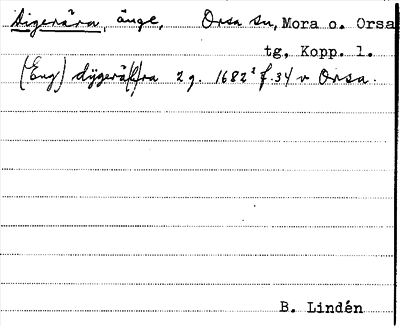 Digeråra, änge, Orsa sn, Mora o. Orsa
tg, Kopp. l.
(Eng) dÿgerå(r)ra 2 g. 1682² f. 34 v Orsa.
B. Lindén